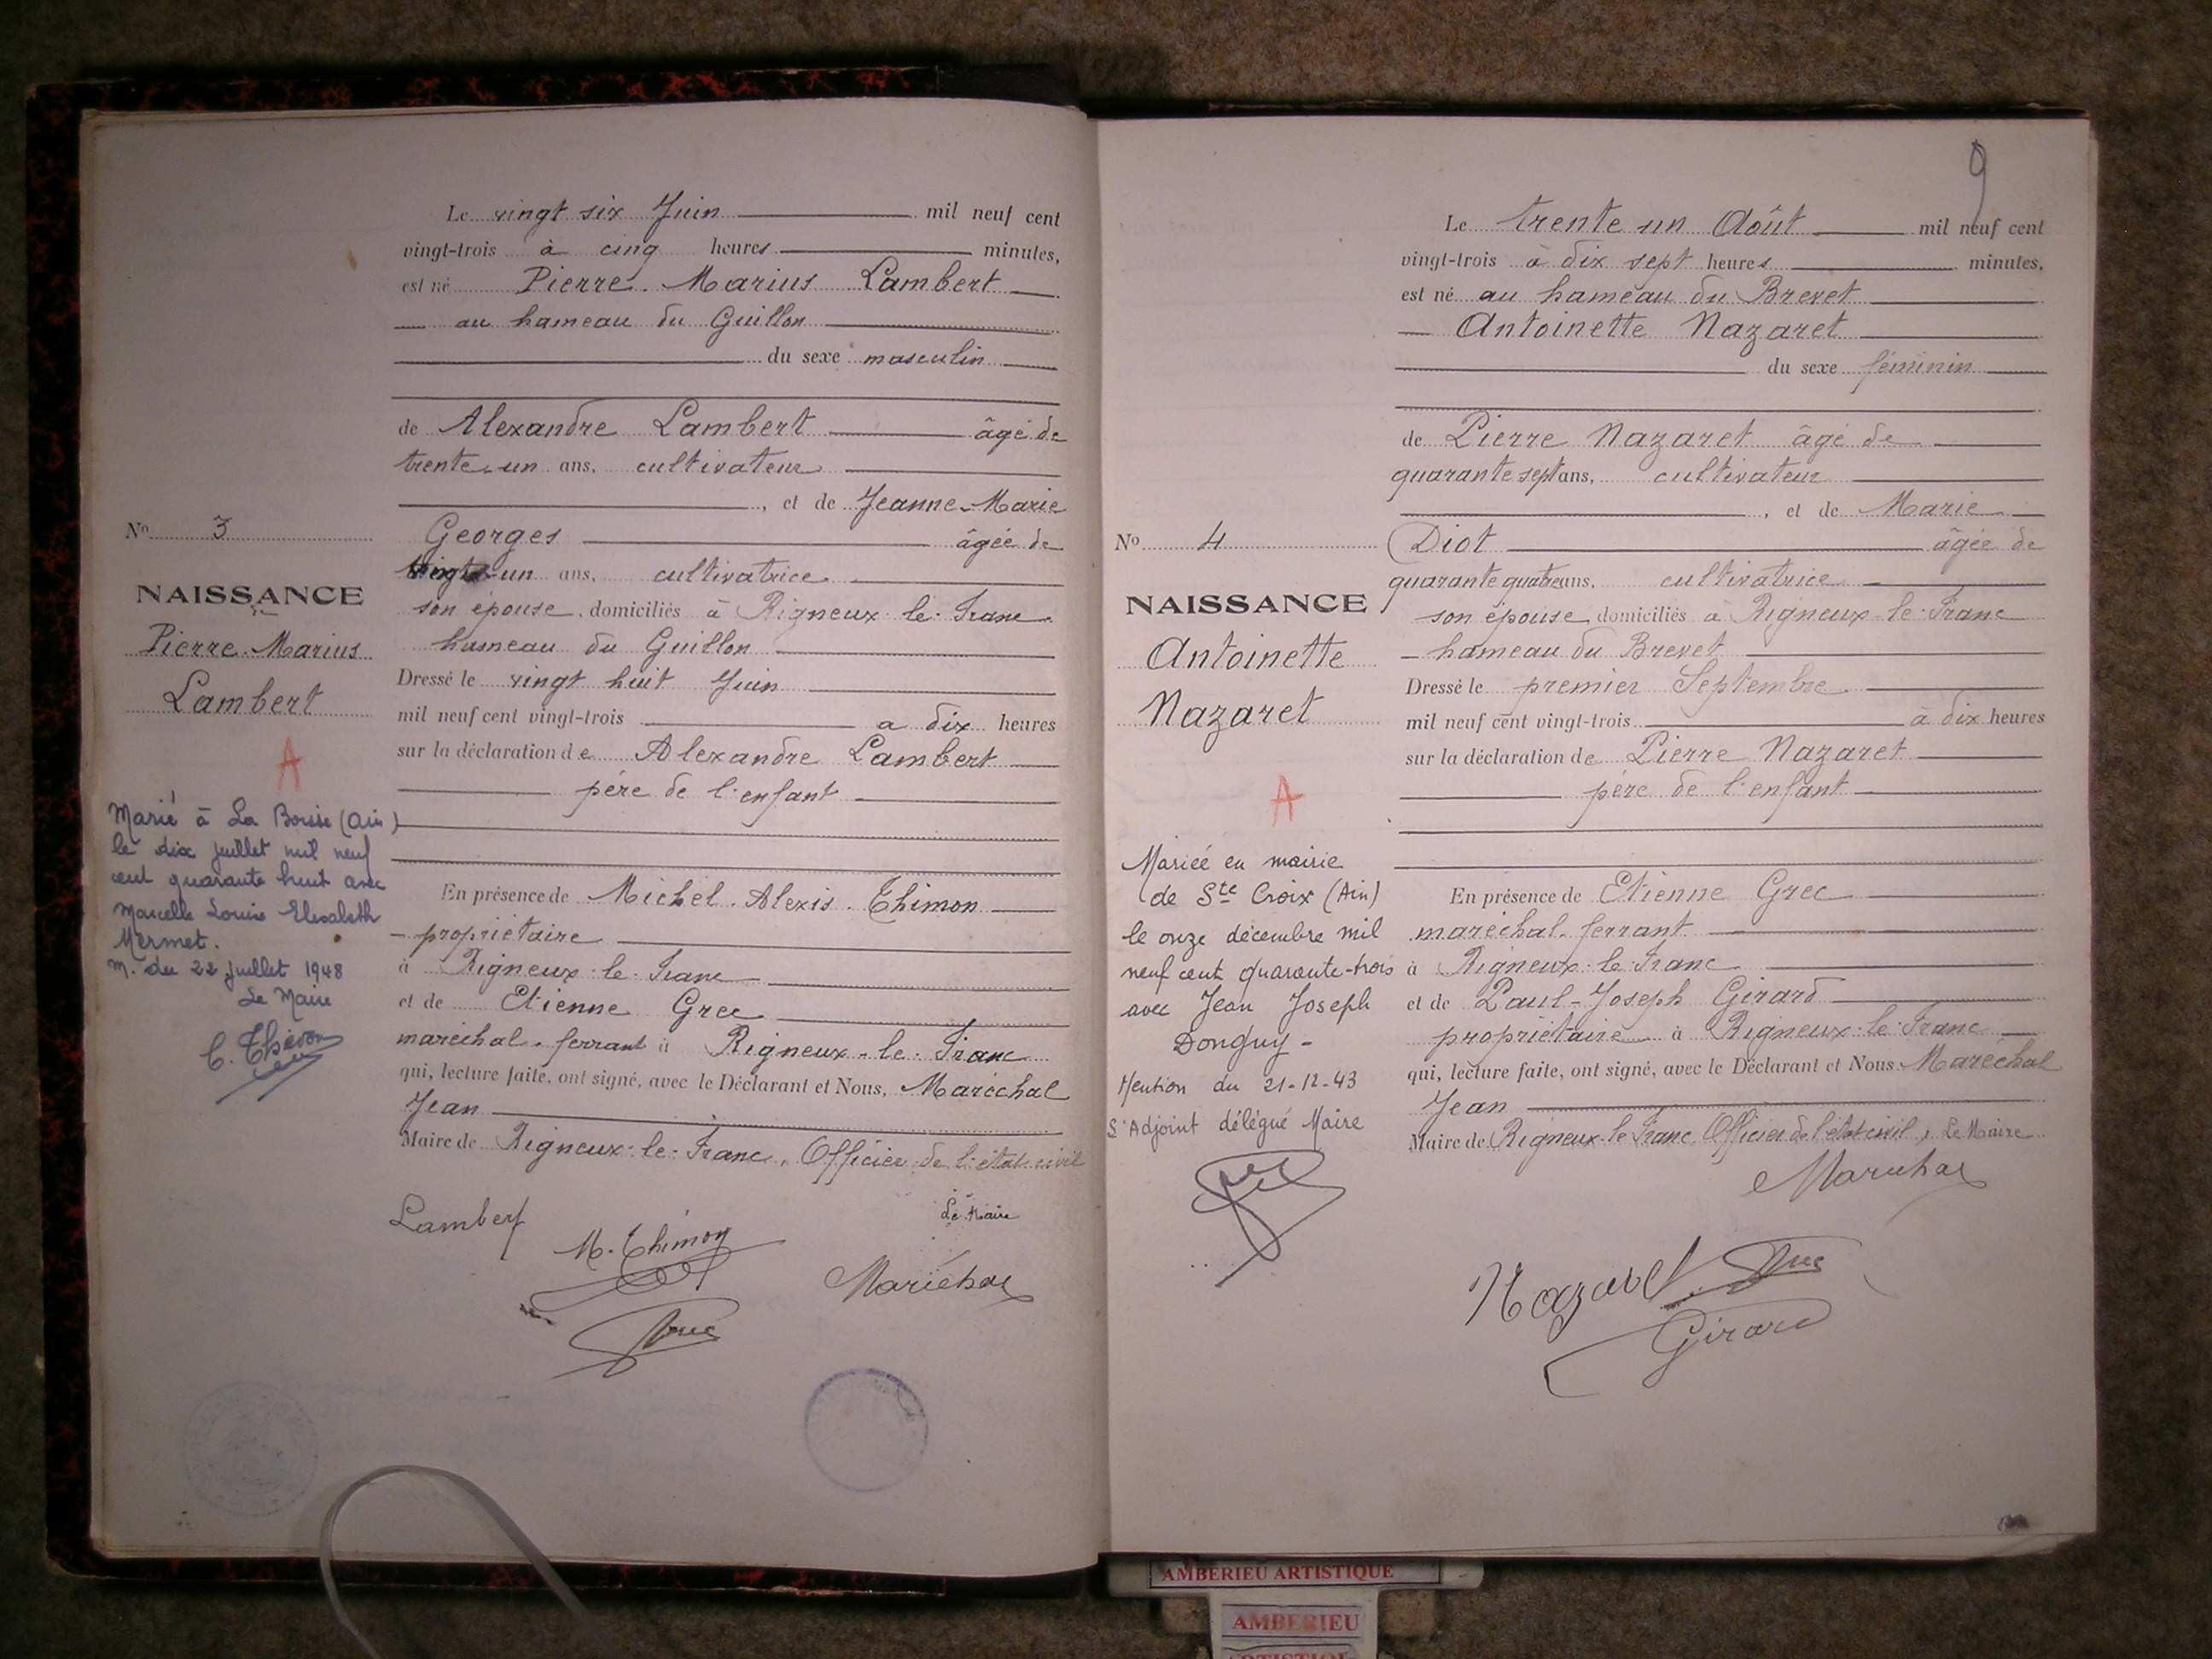 N° 3
NAISSANCE
Pierre Marius
Lambert
A
Marié à La Boisse (Ain)
le dix juillet mil neuf
cent quarante huit avec
Marcelle Louise Elisabeth
Mermet.
M. du 22 juillet 1948
Le Maire
Le vingt six Juin mil neuf cent
vingt-trois à cinq heures minutes,
est né Pierre Marius Lambert
au hameau du Guillon
du sexe masculin
de Alexandre Lambert âgé de
trente-un ans, cultivateur
, et de Jeanne-Marie
Georges âgée de
vingt-un ans, cultivatrice
son épouse, domiciliés à Rigneux-le-Franc
hameau du Guillon
Dressé le vingt huit Juin
mil neuf cent vingt-trois a dix heures
sur la déclaration de Alexandre Lambert
père de l'enfant
En présence de Michel-Alexis Thimon
propriétaire
à Rigneux-le-Franc
et de Etienne Grec
maréchal-ferrant à Rigneux-le-Franc
qui, lecture faite, ont signé, avec le Déclarant et Nous, Maréchal
Jean
Maire de Rigneux-le-Franc, Officier de l'état-civil
Lambert
Le Maire
M. Thimon
Maréchal
9
N° 4
NAISSANCE
Antoinette
Nazaret
A
Mariée en mairie
de Ste Croix (Ain)
le onze décembre mil
neuf cent quarante-trois
avec Jean Joseph
Donguy -
Mention du 21-12-43
L'Adjoint délégué Maire
Le trente un Août mil neuf cent
vingt-trois à dix sept heures minutes,
est né au hameau du Brevet
Antoinette Nazaret
du sexe féminin
de Pierre Nazaret âgé de
quarante sept ans, cultivateur
, et de Marie
Diot âgée de
quarante quatre ans, cultivatrice
son épouse domiciliés à Rigneux-le-Franc
hameau du Brevet
Dressé le premier Septembre
mil neuf cent vingt-trois à dix heures
sur la déclaration de Pierre Nazaret
père de l'enfant
En présence de Etienne Grec
maréchal-ferrant
à Rigneux-le-Franc
et de Paul-Joseph Girard
propriétaire à Rigneux-le-Franc
qui, lecture faite, ont signé, avec le Déclarant et Nous Maréchal
Jean
Maire de Rigneux-le-Franc Officier de l'état-civil, Le Maire
Maréchal
Nazaret
Girard
AMBERIEU ARTISTIQUE
AMBERIEU
ARTISTIQUE